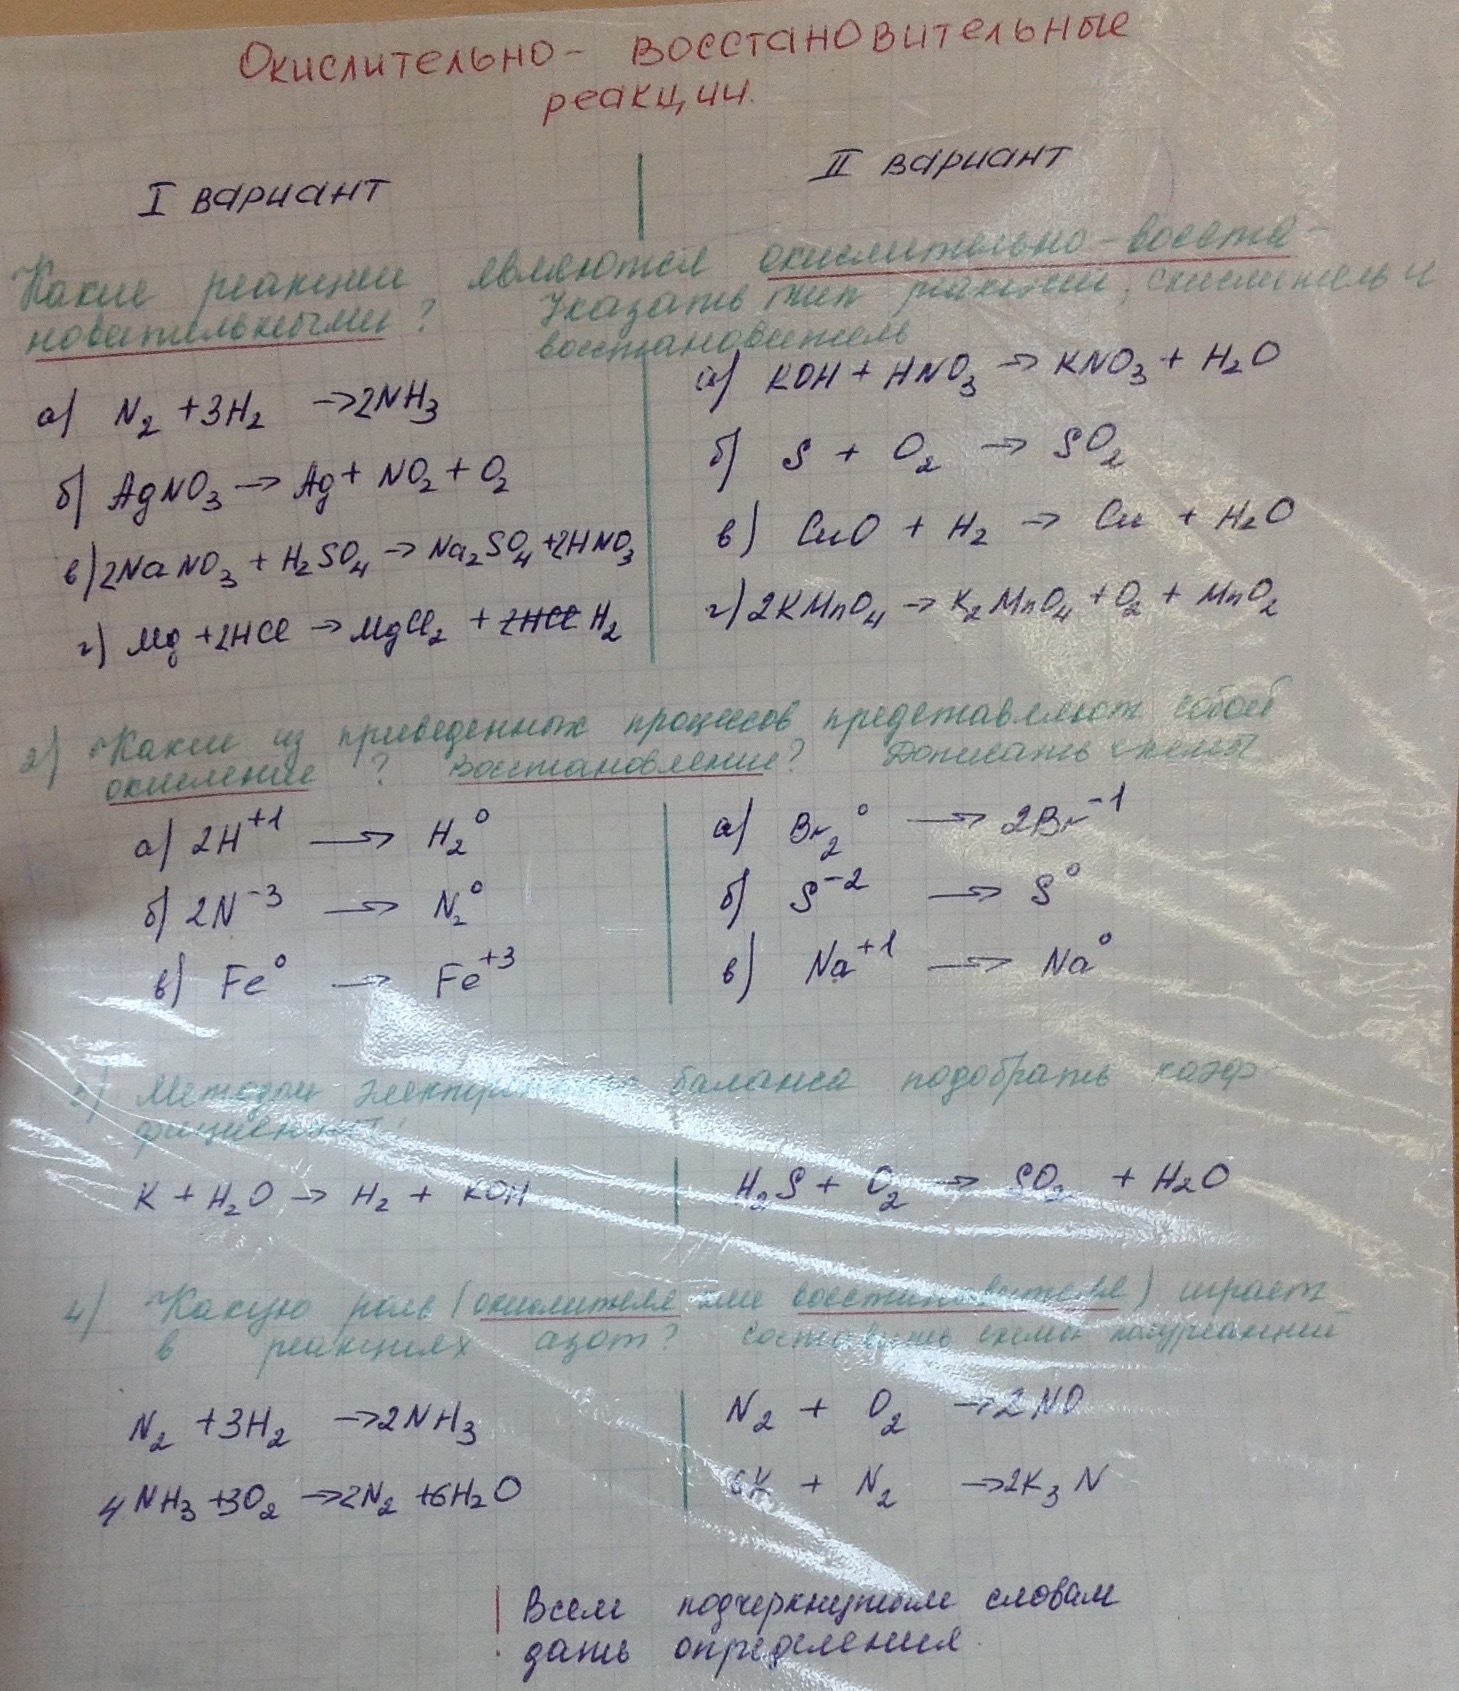 Окислительно- восстановительные
реакции.
I вариант
II вариант
Какие реакции являются окислительно-восста-
новительными? Указать тип реакции, окислитель и
восстановитель
а) N₂ + 3H₂ → 2NH₃
а) KOH + HNO₃ → KNO₃ + H₂O
б) AgNO₃ → Ag + NO₂ + O₂
б) S + O₂ → SO₂
в) 2NaNO₃ + H₂SO₄ → Na₂SO₄ + 2HNO₃
в) CuO + H₂ → Cu + H₂O
г) Mg + 2HCl → MgCl₂ + H₂
г) 2KMnO₄ → K₂MnO₄ + O₂ + MnO₂
2) Какие из приведенных процессов представляют собой
окисление? Восстановление? Дописать схемы
а) 2H⁺¹ → H₂⁰
а) Br₂⁰ → 2Br⁻¹
б) 2N⁻³ → N₂⁰
б) S⁻² → S⁰
в) Fe⁰ → Fe⁺³
в) Na⁺¹ → Na⁰
3) Методом электронного баланса подобрать коэф-
фициенты:
K + H₂O → H₂ + KOH
H₂S + O₂ → SO₂ + H₂O
4) Какую роль (окислителя или восстановителя) играет
в реакциях азот? Составить схемы полуреакций
N₂ + 3H₂ → 2NH₃
N₂ + O₂ → 2NO
4NH₃ + 3O₂ → 2N₂ + 6H₂O
6K + N₂ → 2K₃N
Всем подчеркнутым словам
дать определения.